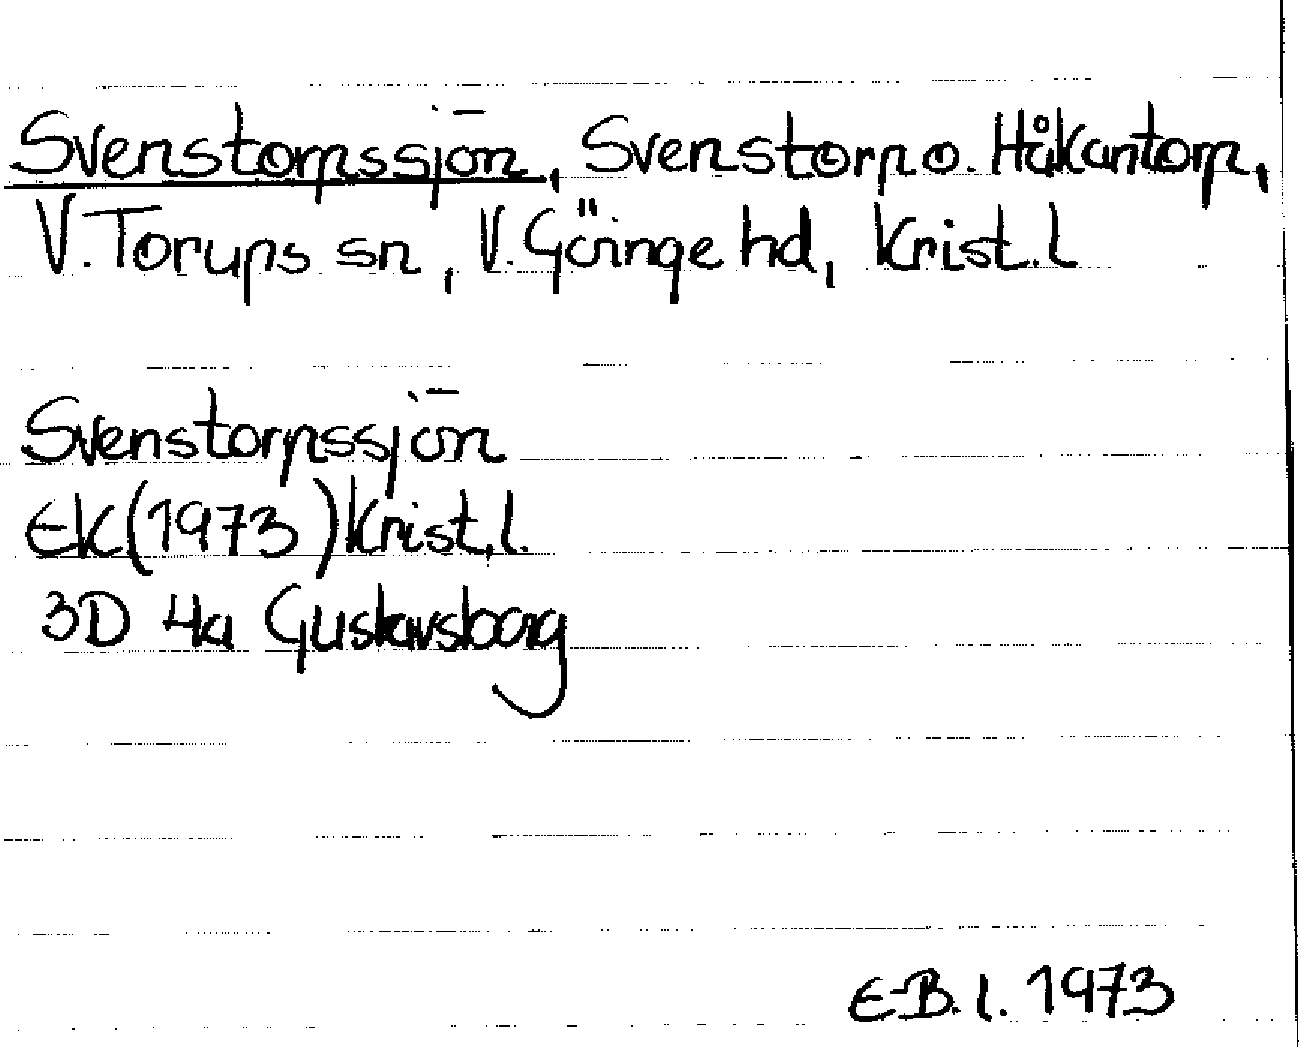 Svenstorpssjön, Svenstorp o. Håkantorp,
V. Torups sn, V. Göinge hd, Krist. l
Svenstorpssjön
EK (1973) Krist. l.
3D 4a Gustavsborg
E-B. l. 1973